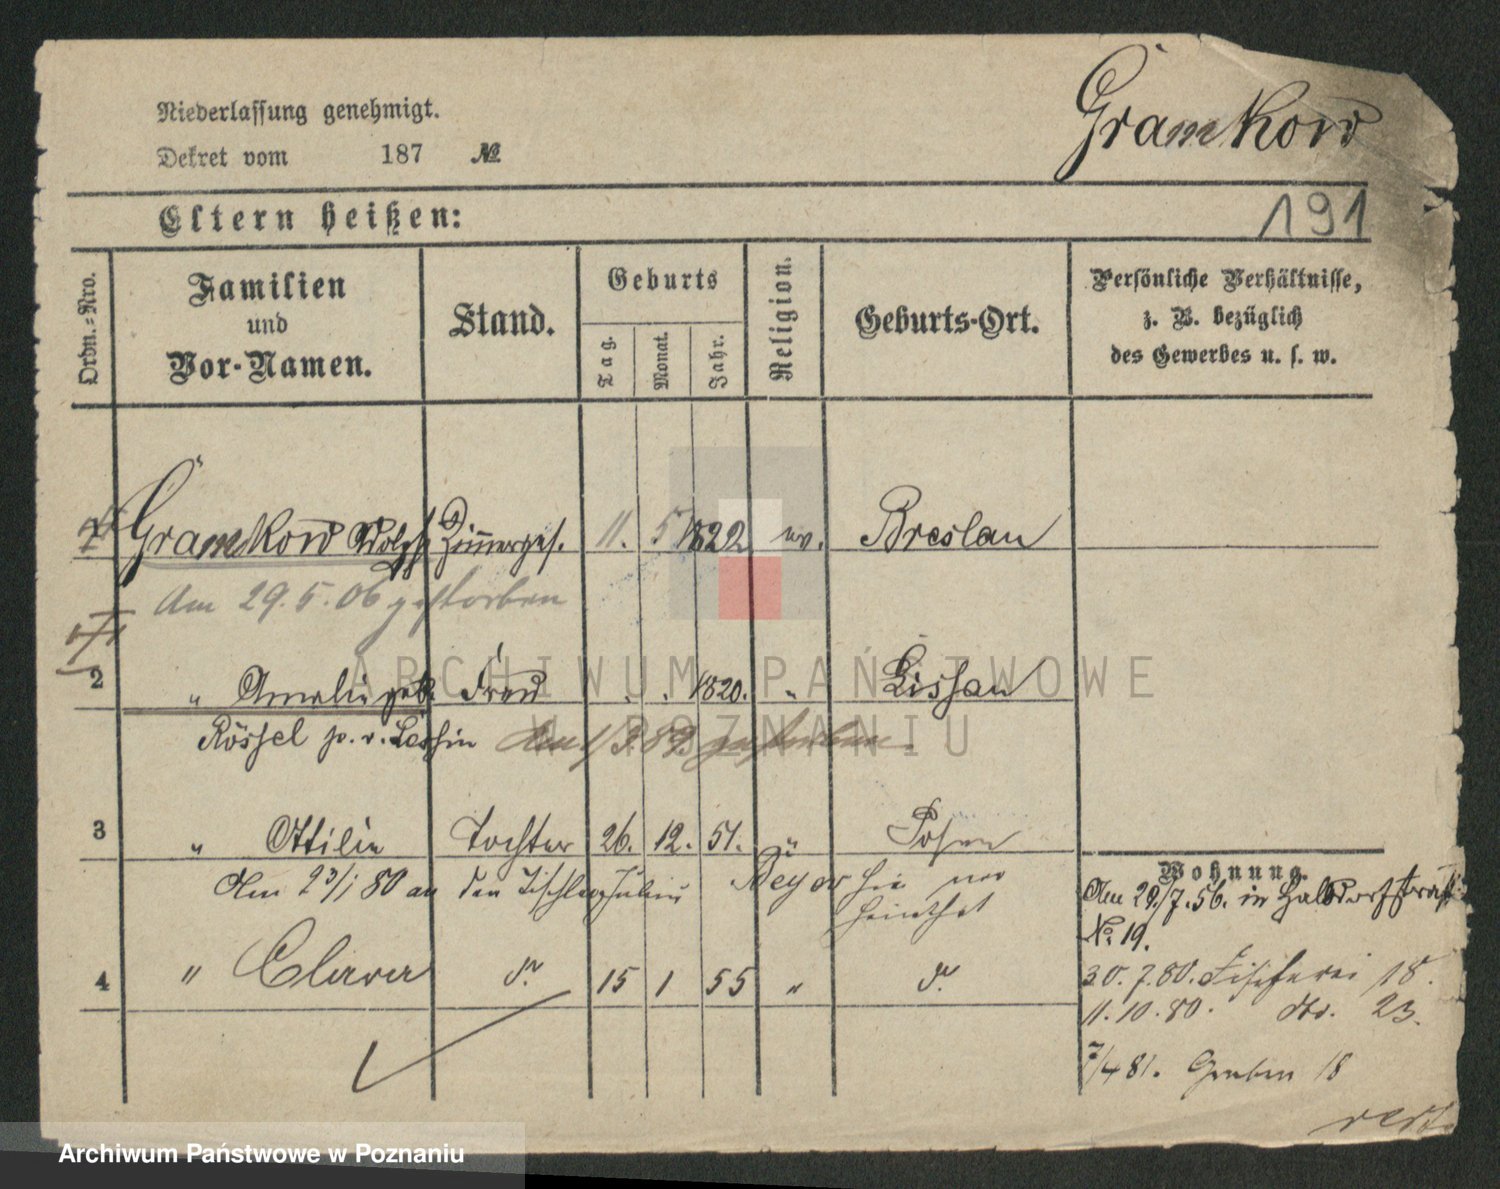 Niederlassung genehmigt.
Dekret vom 187 №
Gramkow
191
Eltern heißen:
Ordn.-Nro.
Familien und Vor-Namen.
Stand.
Geburts
Tag.
Monat.
Jahr.
Religion.
Geburts-Ort.
Persönliche Verhältnisse,
z. B. bezüglich
des Gewerbes u. s. w.
1 Gramkow Zimmerges. 11. 5 1822 ev. Breslau
Am 29.5.06 gestorben
2 " Amalie geb. Frau " " 1820. " Lissau
Rössel
gestorben
3 " Ottilie Tochter 26. 12. 51. " Posen
Am 23/1 80 an den Tischler Julius Beyer
4 " Clara dr. 15 1 55 " dr.
Wohnung.
Am 29/7.56. in Halbdorfstraße
No. 19.
30.7.80. Fischerei 18.
11.10.80. do. 23.
7/4 81. Graben 18
vert.
ARCHIWUM PAŃSTWOWE
W POZNANIU
Archiwum Państwowe w Poznaniu